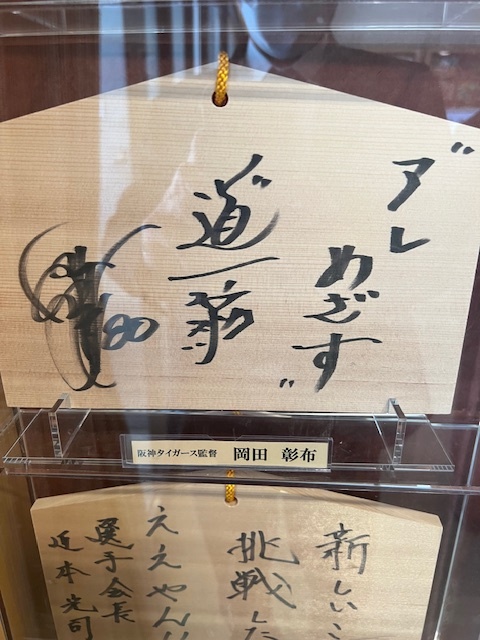 "アレ
めざす"
道一筋
80
阪神タイガース監督 岡田 彰布
新しいこ
挑戦した
ええやん
選手会長
近本光司